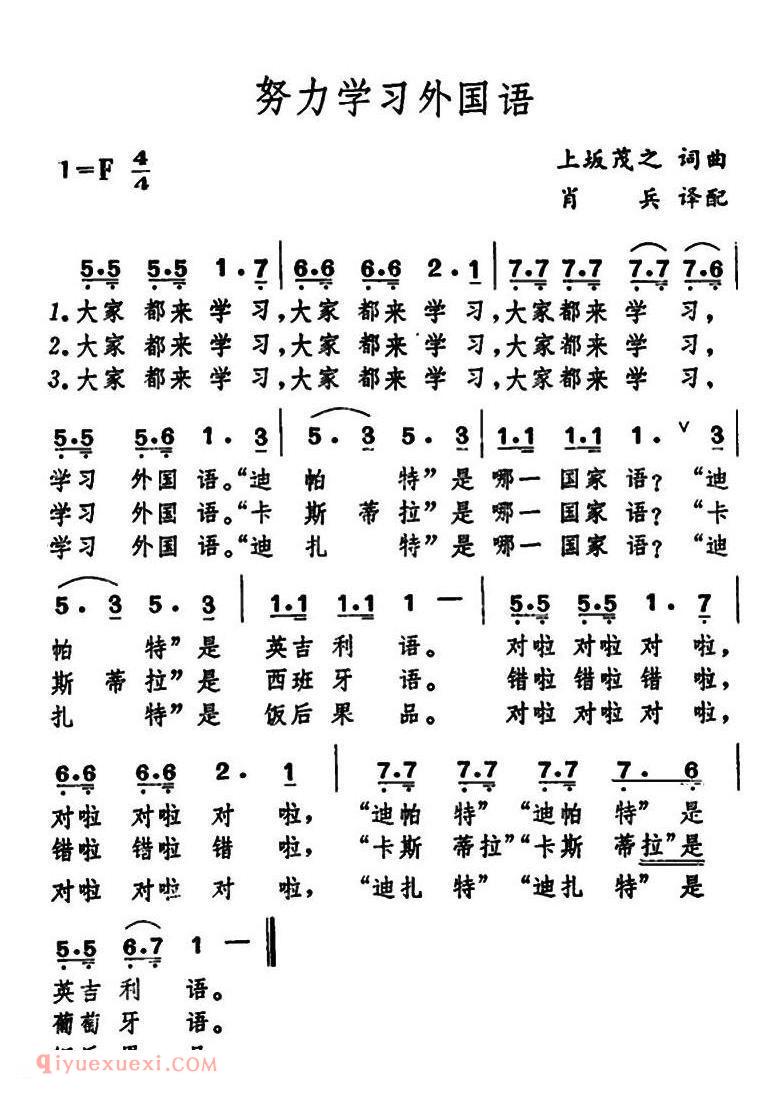 努力学习外国语
1=F 4/4
上坂茂之 词曲
肖 兵 译配
5.5 5.5 1.7 | 6.6 6.6 2.1 | 7.7 7.7 7.7 7.6 |
1.大家都来学习,大家都来学习,大家都来学习,
2.大家都来学习,大家都来学习,大家都来学习,
3.大家都来学习,大家都来学习,大家都来学习,
5.5 5.6 1.3 | 5.3 5.3 | 1.1 1.1 1. ∨ 3
学习 外国语。“迪 帕 特”是哪一国家语? “迪
学习 外国语。“卡 斯蒂拉”是哪一国家语? “卡
学习 外国语。“迪 扎 特”是哪一国家语? “迪
5.3 5.3 | 1.1 1.1 1 — | 5.5 5.5 1.7 |
帕 特”是 英吉利 语。 对啦对啦对 啦,
斯蒂拉”是 西班牙 语。 错啦错啦错 啦,
扎 特”是 饭后果 品。 对啦对啦对 啦,
6.6 6.6 2.1 | 7.7 7.7 7.7 7.6 |
对啦 对啦 对 啦, “迪帕 特” “迪帕 特”是
错啦 错啦 错 啦, “卡斯 蒂拉”“卡斯 蒂拉”是
对啦 对啦 对 啦, “迪扎 特” “迪扎 特”是
5.5 6.7 1 — ‖
英吉利 语。
葡萄牙 语。
qiyuexuexi.com